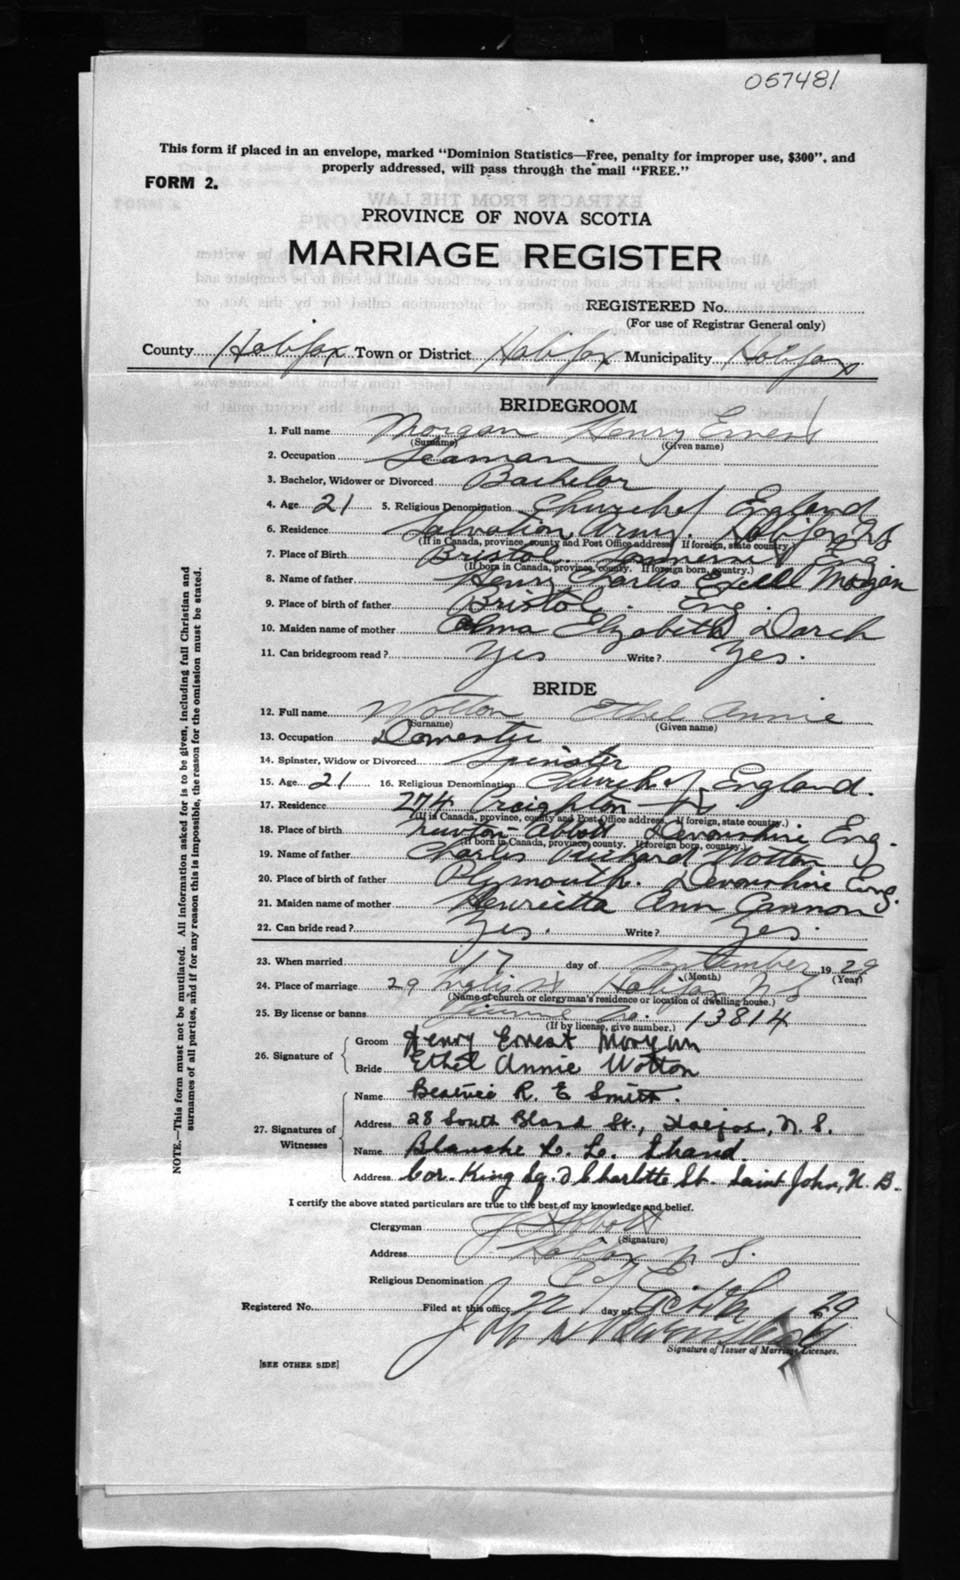 057481
This form if placed in an envelope, marked "Dominion Statistics—Free, penalty for improper use, $300", and
properly addressed, will pass through the mail "FREE."
FORM 2.
PROVINCE OF NOVA SCOTIA
MARRIAGE REGISTER
REGISTERED No.
(For use of Registrar General only)
County Halifax Town or District Halifax Municipality Halifax
BRIDEGROOM
1. Full name Morgan Henry Ernest
(Surname) (Given name)
2. Occupation Seaman
3. Bachelor, Widower or Divorced Bachelor
4. Age 21 5. Religious Denomination Church of England
6. Residence Salvation Army. Halifax NS
(If in Canada, province, county and Post Office address. If foreign, state country.)
7. Place of Birth Bristol. Eng
(If born in Canada, province, county. If foreign born, country.)
8. Name of father Henry Charles Morgan
9. Place of birth of father Bristol. Eng.
10. Maiden name of mother Elizabeth Darch
11. Can bridegroom read? Yes Write? Yes.
BRIDE
12. Full name Wotton Ethel Annie
(Surname) (Given name)
13. Occupation Domestic
14. Spinster, Widow or Divorced Spinster
15. Age 21 16. Religious Denomination Church of England.
17. Residence 274 Creighton St.
(If in Canada, province, county and Post Office address. If foreign, state country.)
18. Place of birth Newton Abbott Devonshire Eng.
(If born in Canada, province, county. If foreign born, country.)
19. Name of father Charles Richard Wotton
20. Place of birth of father Plymouth. Devonshire Eng.
21. Maiden name of mother Henrietta Ann Cannon
22. Can bride read? Yes. Write? Yes.
23. When married 17 day of September 1929
(Month) (Year)
24. Place of marriage 29 Inglis St Halifax N S
(Name of church or clergyman's residence or location of dwelling house.)
25. By license or banns License No. 13814
(If by license, give number.)
26. Signature of Groom Henry Ernest Morgan
Bride Ethel Annie Wotton
27. Signatures of Witnesses Name Beatrice R. E Smith.
Address 28 South Bland St., Halifax, N. S.
Name Blanche L. L. Shand.
Address Cor. King Sq. & Charlotte St. Saint John, N. B.
I certify the above stated particulars are true to the best of my knowledge and belief.
Clergyman
(Signature)
Address Halifax N S.
Religious Denomination C of E
Registered No. Filed at this office 22 day of 29
Signature of Issuer of Marriage Licenses.
[SEE OTHER SIDE]
NOTE.—This form must not be mutilated. All information asked for is to be given, including full Christian and
surnames of all parties, and if for any reason this is impossible, the reason for the omission must be stated.